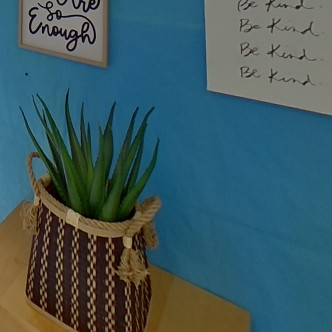 Are
So
Enough
Be Kind.
Be Kind.
Be Kind.
Be Kind.